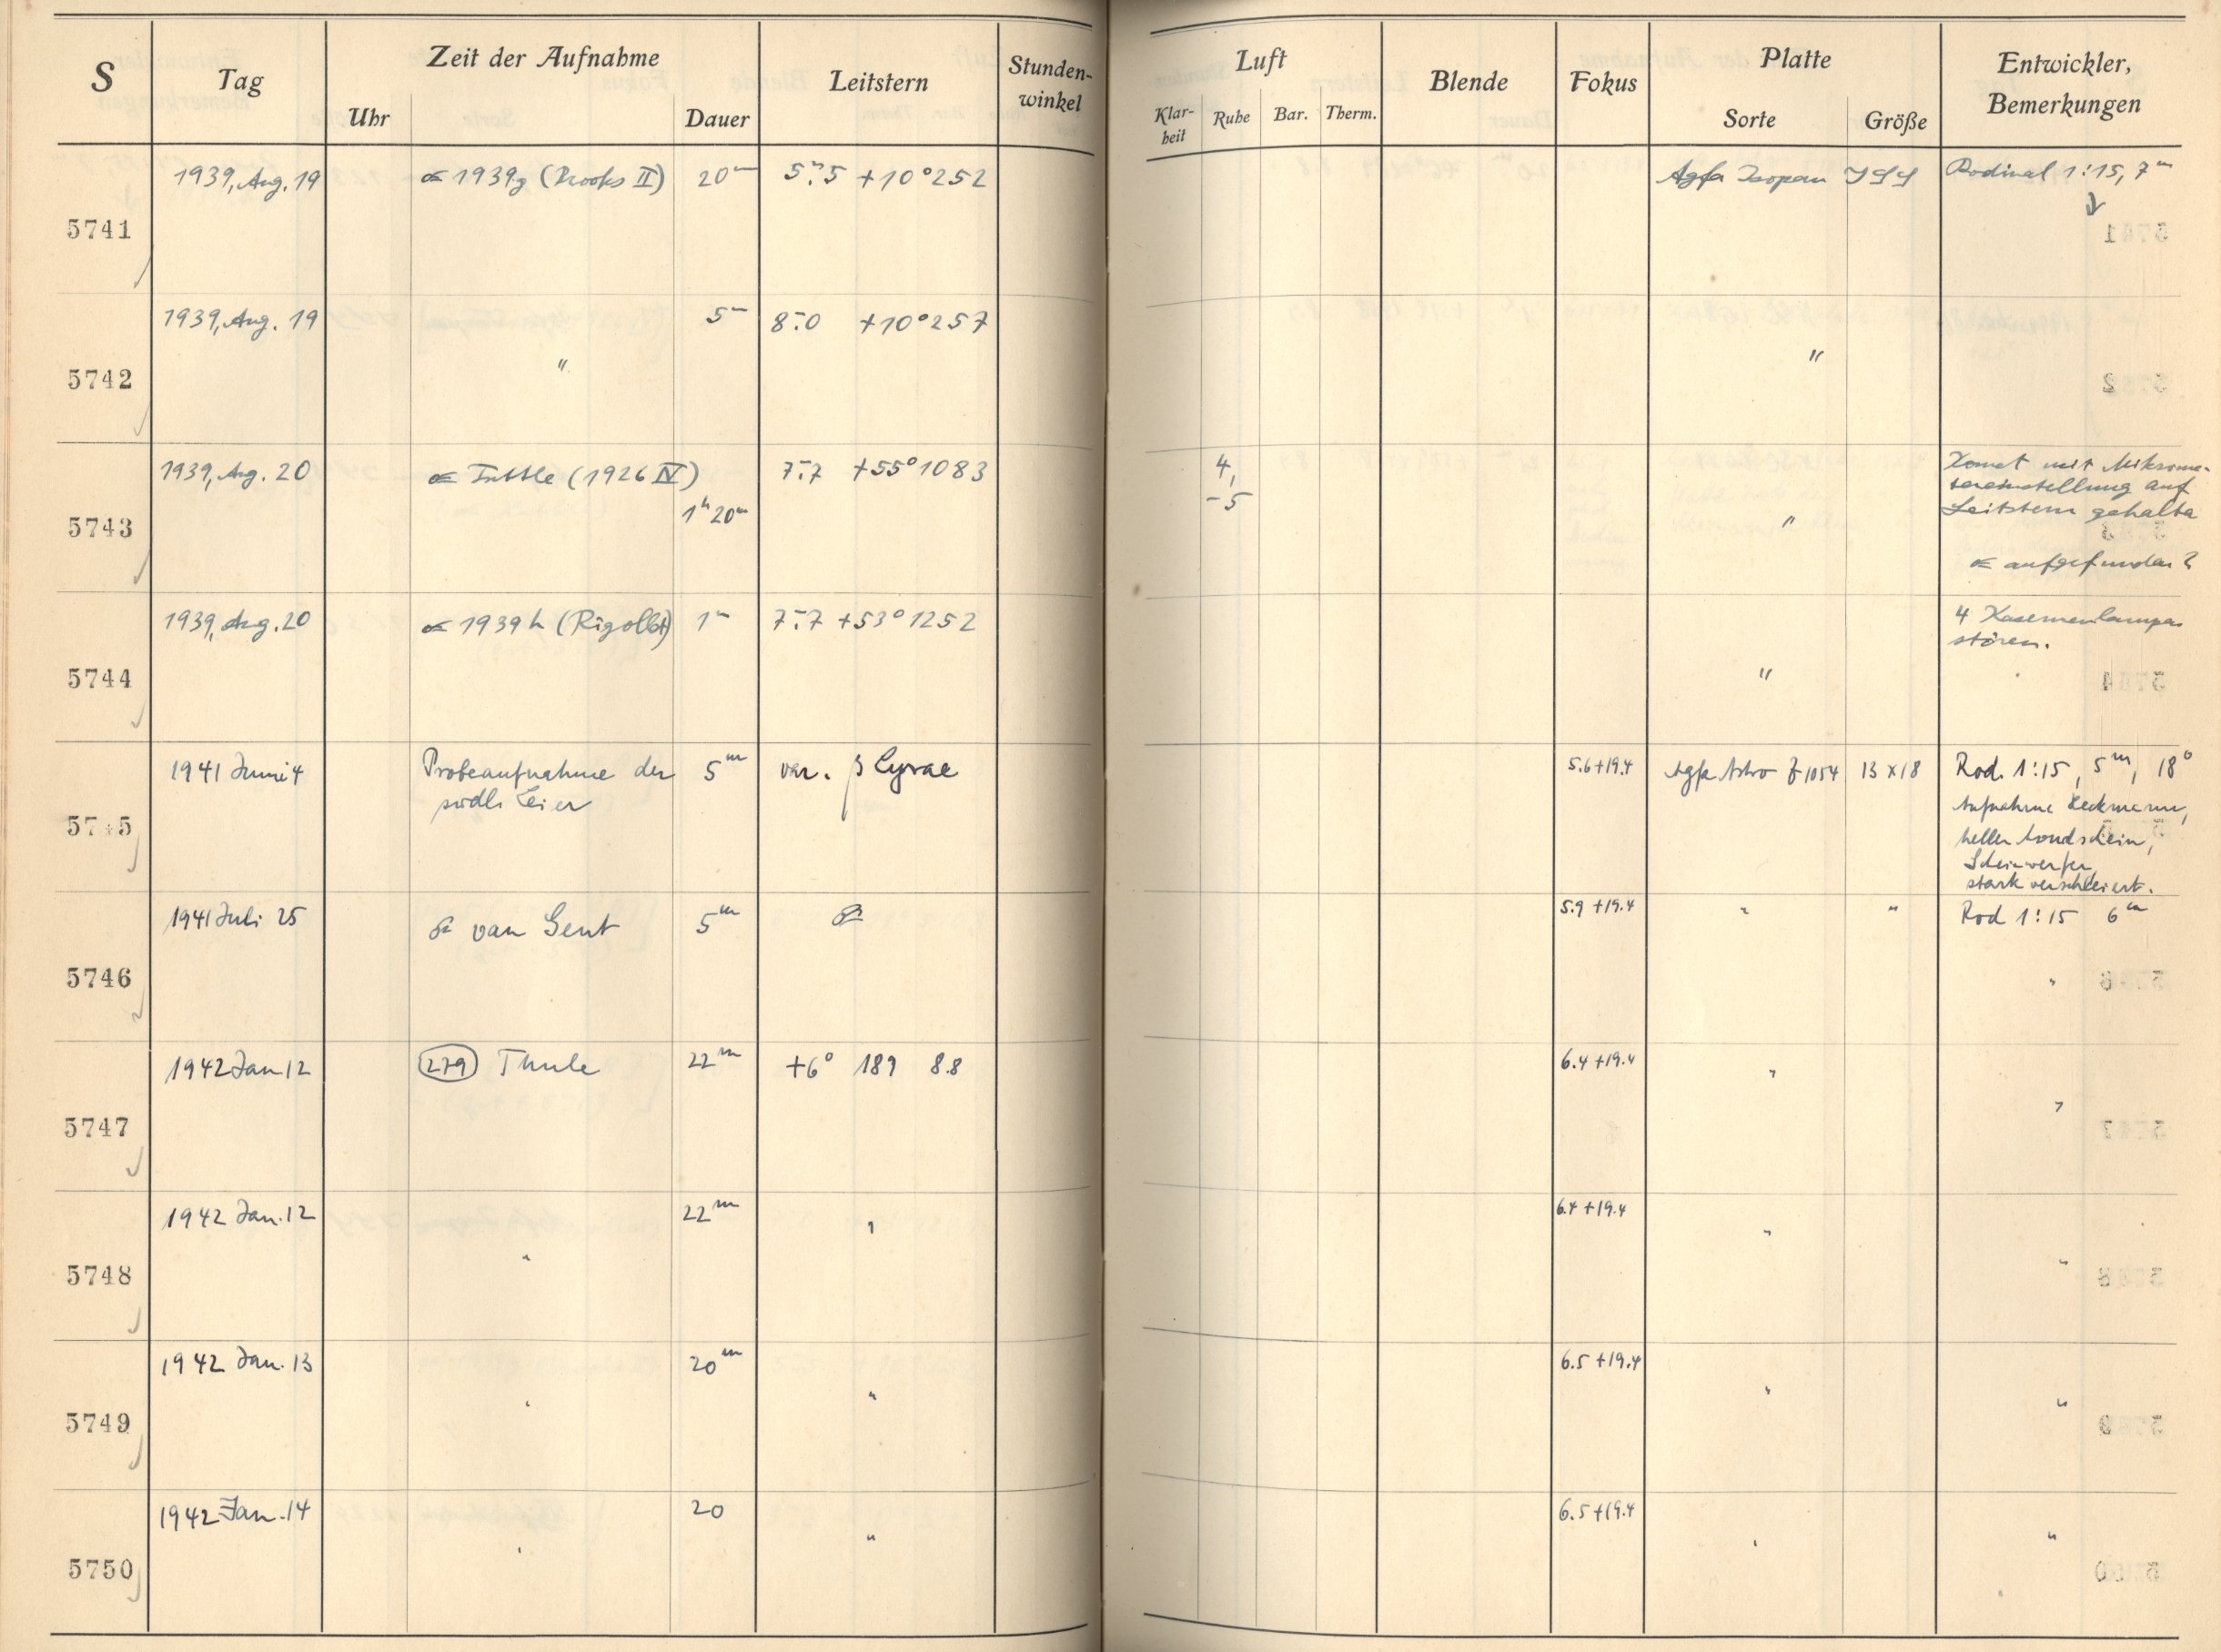 S Tag Zeit der Aufnahme Leitstern Stunden-winkel Luft Blende Fokus Platte Entwickler, Bemerkungen
Uhr Dauer Klar-heit Ruhe Bar. Therm. Sorte Größe
5741 1939, Aug. 19 ☄ 1939g (Brooks II) 20m 5m.5 +10°252 Agfa Isopan ISS Rodinal 1:15, 7m
↓
5742 1939, Aug. 19 " 5m 8m.0 +10°257 "
5743 1939, Aug. 20 ☄ Tuttle (1926 IV) 1h 20m 7m.7 +55°1083 4, -5 " Komet mit Mikrome-
tereinstellung auf
Leitstern gehalten
☄ aufgefunden?
5744 1939, Aug. 20 ☄ 1939 h (Rigollet) 1m 7m.7 +53°1252 " 4 Kasernenlampen
stören.
5745 1941 Juni 4 Probeaufnahme der 5m var. β Lyrae 5.6+19.4 Agfa Astro 1054 13 x 18 Rod. 1:15, 5m, 18°
südl. Leier Aufnahme Heckmann,
heller Mondschein,
Scheinwerfer
stark verschleiert.
5746 1941 Juli 25 ☄ van Gent 5m ☄ 5.9 +19.4 " " Rod 1:15 6m
"
5747 1942 Jan 12 (279) Thule 22m +6° 189 8.8 6.4 +19.4 " "
5748 1942 Jan. 12 " 22m " 6.4 +19.4 " "
5749 1942 Jan. 13 " 20m " 6.5 +19.4 " "
5750 1942 Jan. 14 " 20 " 6.5 +19.4 " "